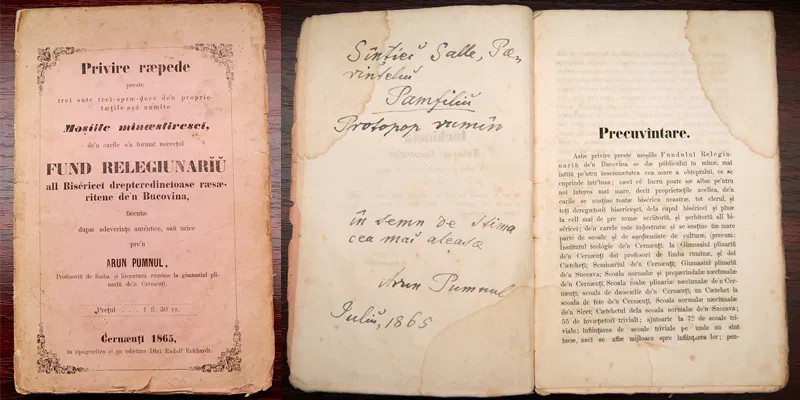 Privire ræpede
preste
trei sute trei-spræ-ḑece de'n proprie-
tæțile așá numite
Moșiile minæstiresci,
de'n carile s'a format mærețul
FUND RELEGIUNARĬŬ
all Bisériceĭ drepteredincĭoase ræsæ-
ritene de'n Bucovina,
fæcutæ
dupæ adeverințe auténtice, saŭ urice
pre'n
ARUN PUMNUL,
Profesoriŭ de limba și literatura romîne la gimnasiul pli-
nariŭ de'n Cernæuțĭ.
Prețul . . . . 1 fl. 30 cr.
Cernæuțĭ 1865,
în tipografiea și cu editura Dlui Rudolf Eckhardt.
Sînțieĭ Salle, Pæ-
rinteluĭ
Pamfiliŭ
Protopop rumîn
în semn de stima
cea maĭ aleasæ
Arun Pumnul
Iuliŭ, 1865
Precuvîntare.
Astæ privire preste moșiile Fundului Relegiu-
nariŭ de'n Bucovina se dæ publiculuĭ în mînæ, maĭ
întîiŭ pe'ntru însemnætatea cea mare a obĭeptuluĭ, ce se
cuprinde într'însa; cacĭ cĕ lucru poate sæ aĭbæ pe'ntru
noĭ interes maĭ mare, decît proprietæțile acelea, de'n
carile se susține toatæ biserica noastræ, tot clerul, și
toțĭ deregætoriĭ bisericeșcĭ, dela capul bisericeĭ și pînæ
la cell maĭ de pre urmæ scriitoriŭ, și șerbitoriŭ all bi-
sericeĭ; de'n carele este înființatæ și se susține fie mare
parte de scoale și de așeḑæminte de culturæ, (precum:
Institutul teologic de'n Cernæuțĭ, la Gĭmnasiul plinariŭ
de'n Cernæuțĭ doĭ profesorĭ de limba romînæ, și doĭ
Catechețĭ; Seminariul de'n Cernæuțĭ; Gĭmnasiul plinariŭ
de'n Suceava; Scoala normalæ și preparændalæ næcĭunalæ
de'n Cernæuțĭ; Scoala reale plinariæ næcĭunalæ de'n Cer-
næuțĭ; scoala de dascælie de'n Cernæuțĭ, un Catechet la
scoala de fete de'n Cernæuțĭ, Scoala normalæ næcĭunalæ
de'n Siret; Catechetul dela scoala normalæ de'n Suceava;
55 de învæțætorĭ trivialĭ; ajutoarie la 72 de scoale tri-
viale; înființarea de scoale triviale pe unde nu sînt
încæ, necĭ se aflæ mijloace spre înființarea lor; pen-